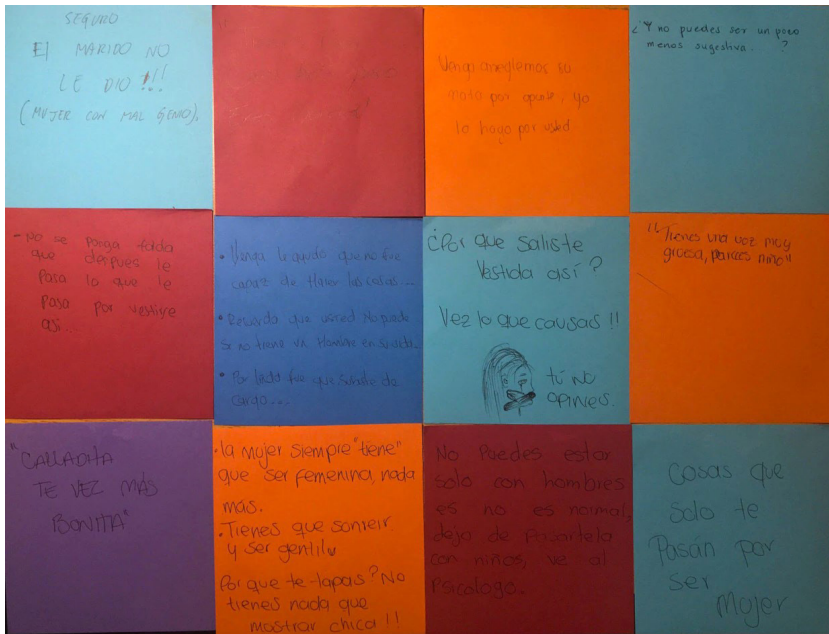 SEGURO
El MARIDO NO
LE DIO !!!
(MUJER CON MAL GENIO),
Venga arreglemos su
moto por aparte, yo
lo hago por usted
¿Y no puedes ser un poco
menos sugestiva. ?
- No se ponga falda
que después le
Pasa lo que le
Pasa por vestirse
asi...
• Venga le ayudo que no fue
capaz de Hacer las cosas...
• Recuerda que usted No puede
si no tiene un Hombre en su vida.
• Por fue que subiste de
cargo...
¿Por que saliste
Vestida así ?
Vez lo que causas !!
tú no
opines.
"Tienes una voz muy
gruesa, pareces niño"
"CALLADITA
TE VEZ MÁS
BONITA"
• la mujer siempre "tiene"
que ser femenina, nada
más.
• Tienes que sonreir
y ser gentil
Por que te tapas? No
tienes nada que
mostrar chica !!
No Puedes estar
solo con hombres
es no es normal,
deja de
con niños, ve al
Psicologo.
Cosas que
solo te
Pasan por
ser
Mujer